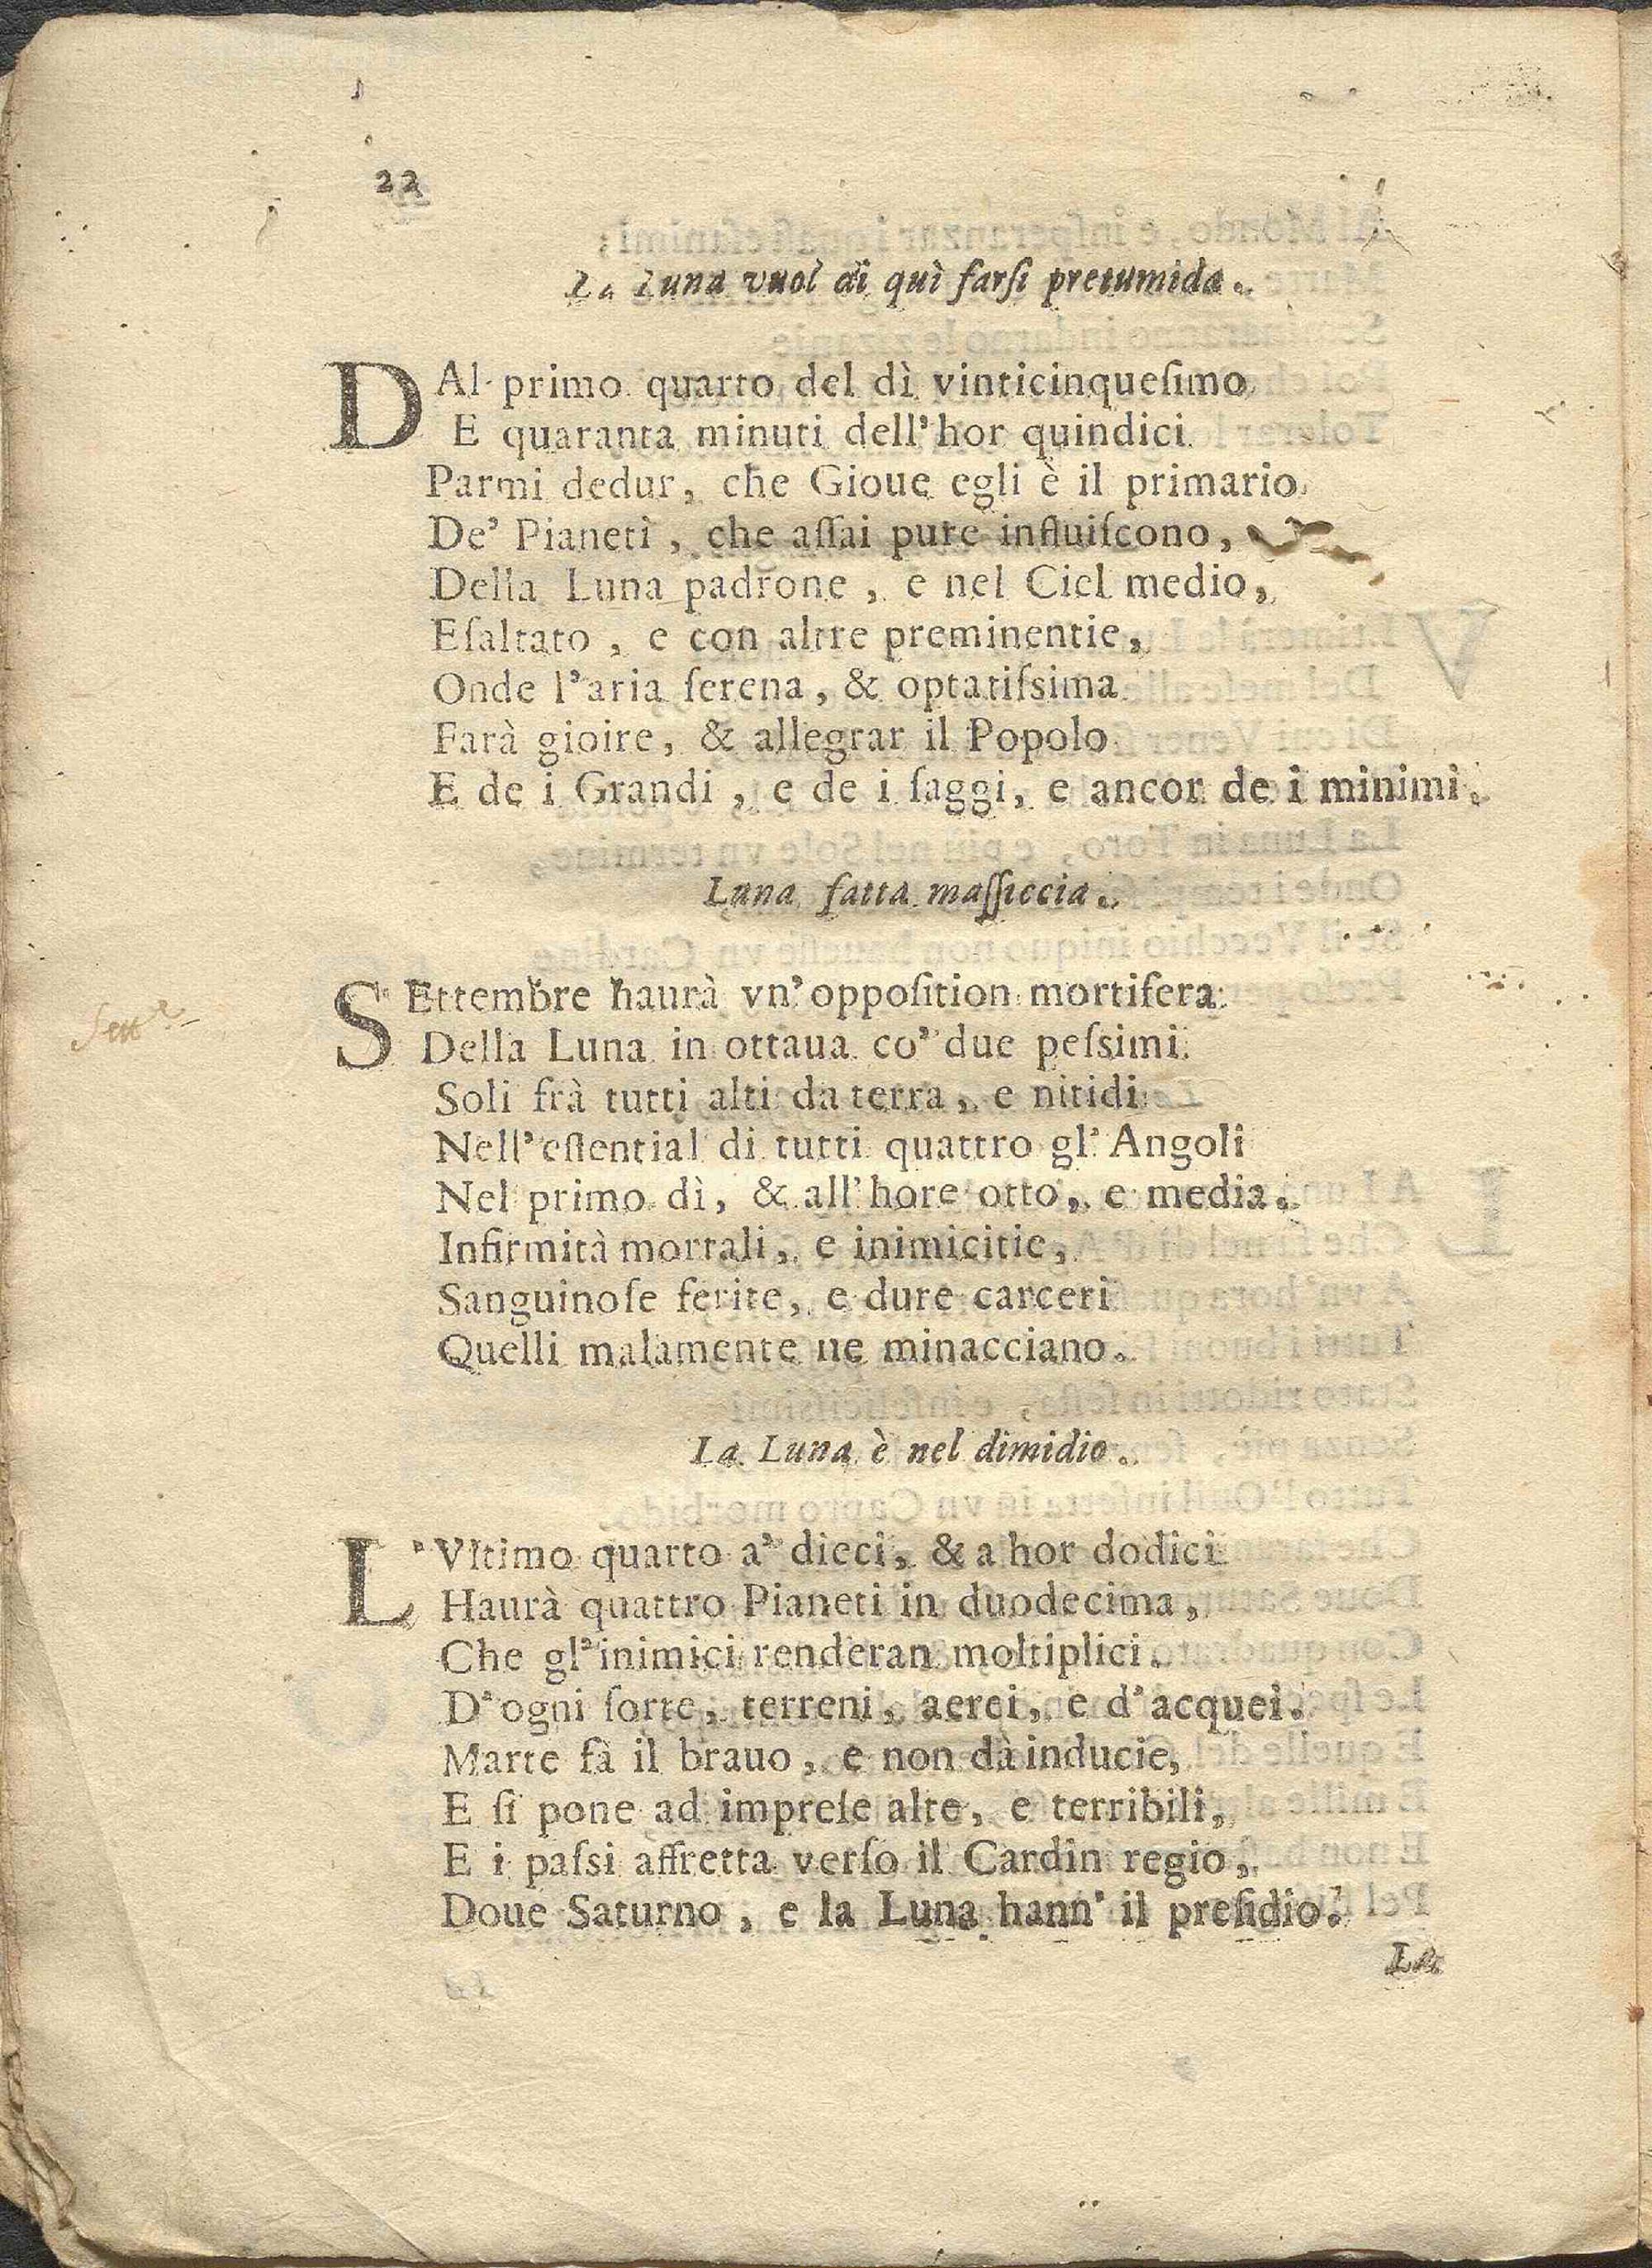 22
La Luna vuol di quì farſi pretumida.
DAl primo quarto del dì vinticinqueſimo
E quaranta minuti dell'hor quindici
Parmi dedur, che Gioue egli è il primario
De' Pianeti, che aſſai pure influiſcono,
Della Luna padrone, e nel Ciel medio,
Eſaltato, e con altre preminentie,
Onde l'aria ſerena, & optatiſsima
Farà gioire, & allegrar il Popolo
E de i Grandi, e de i ſaggi, e ancor de i minimi.
Luna fatta maſſiccia.
SEttembre haurà vn'oppoſition mortifera
Sett.e
Della Luna in ottaua co' due peſsimi
Soli frà tutti alti da terra, e nitidi
Nell'eſſential di tutti quattro gl'Angoli
Nel primo dì, & all'hore otto, e media.
Infirmità mortali, e inimicitie,
Sanguinoſe ferite, e dure carceri
Quelli malamente ne minacciano.
La Luna è nel dimidio.
L'Vltimo quarto a' dieci, & a hor dodici
Haurà quattro Pianeti in duodecima,
Che gl'inimici renderan moltiplici
D'ogni ſorte, terreni, aerei, e d'acquei.
Marte fà il brauo, e non dà inducie,
E ſi pone ad impreſe alte, e terribili,
E i paſsi affretta verſo il Cardin regio,
Doue Saturno, e la Luna hann' il preſidio.
La